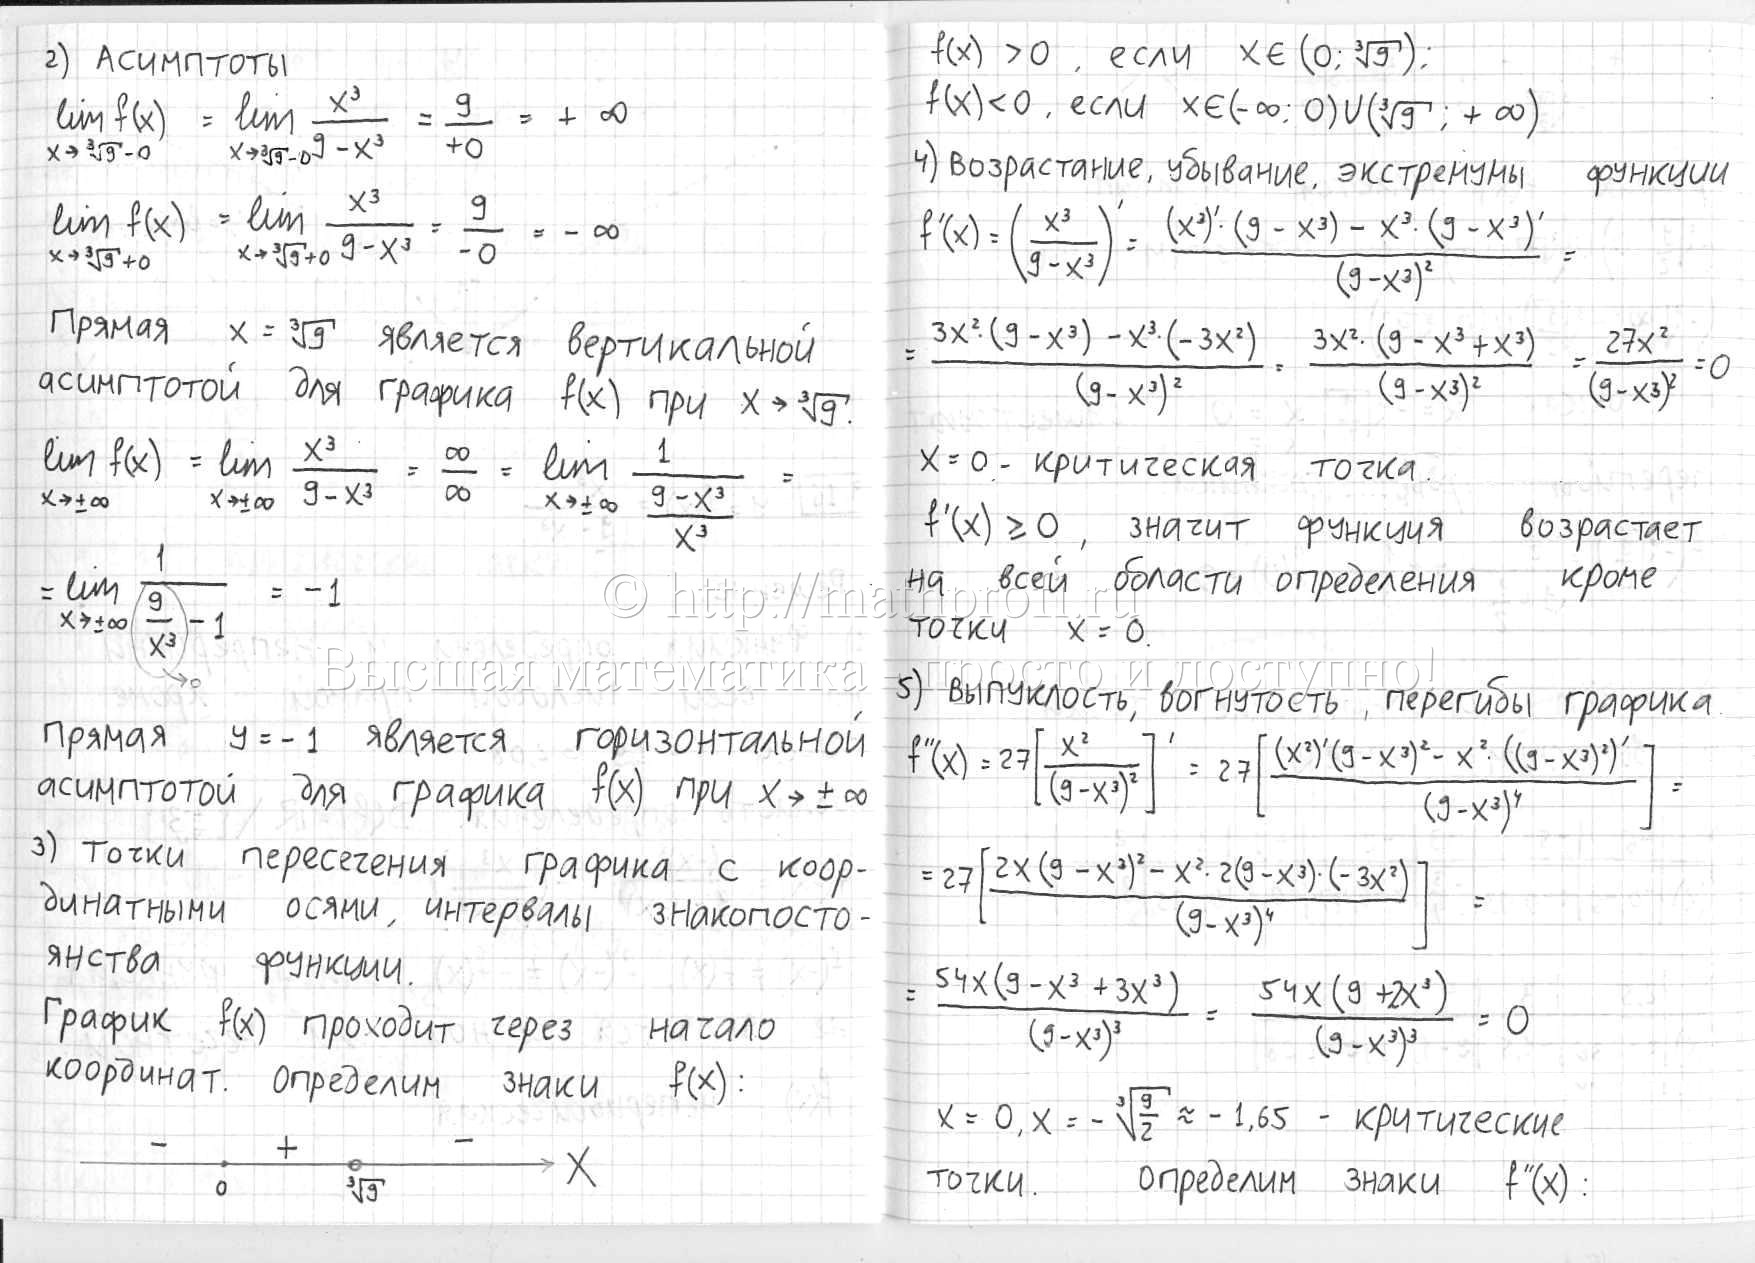 2) Асимптоты
lim f(x) = lim x³/(9-x³) = 9/+0 = + ∞
x→∛9-0 x→∛9-0
lim f(x) = lim x³/(9-x³) = 9/-0 = - ∞
x→∛9+0 x→∛9+0
Прямая x = ∛9 является вертикальной
асимптотой для графика f(x) при x→∛9.
lim f(x) = lim x³/(9-x³) = ∞/∞ = lim 1/((9-x³)/x³) =
x→±∞ x→±∞ x→±∞
= lim 1/(9/x³ - 1) = -1
x→±∞
→0
Прямая y = -1 является горизонтальной
асимптотой для графика f(x) при x→±∞
3) Точки пересечения графика с коор-
динатными осями, интервалы знакопосто-
янства функции.
График f(x) проходит через начало
координат. Определим знаки f(x):
- + -
0 ∛9 X
f(x) > 0, если x∈(0; ∛9);
f(x) < 0, если x∈(-∞; 0)∪(∛9; +∞)
4) Возрастание, убывание, экстремумы функции
f'(x) = (x³/(9-x³))' = ((x³)'·(9-x³) - x³·(9-x³)')/(9-x³)² =
= (3x²·(9-x³) - x³·(-3x²))/(9-x³)² = (3x²·(9-x³+x³))/(9-x³)² = 27x²/(9-x³)² = 0
x = 0 - критическая точка.
f'(x) ≥ 0, значит функция возрастает
на всей области определения кроме
точки x = 0.
5) Выпуклость, вогнутость, перегибы графика.
f''(x) = 27[x²/(9-x³)²]' = 27[((x²)'(9-x³)² - x²·((9-x³)²)')/(9-x³)⁴] =
= 27[(2x(9-x³)² - x²·2(9-x³)·(-3x²))/(9-x³)⁴] =
= 54x(9-x³+3x³)/(9-x³)³ = 54x(9+2x³)/(9-x³)³ = 0
x = 0, x = -∛(9/2) ≈ -1,65 - критические
точки. Определим знаки f''(x):
© http://mathprofi.ru
Высшая математика – просто и доступно!